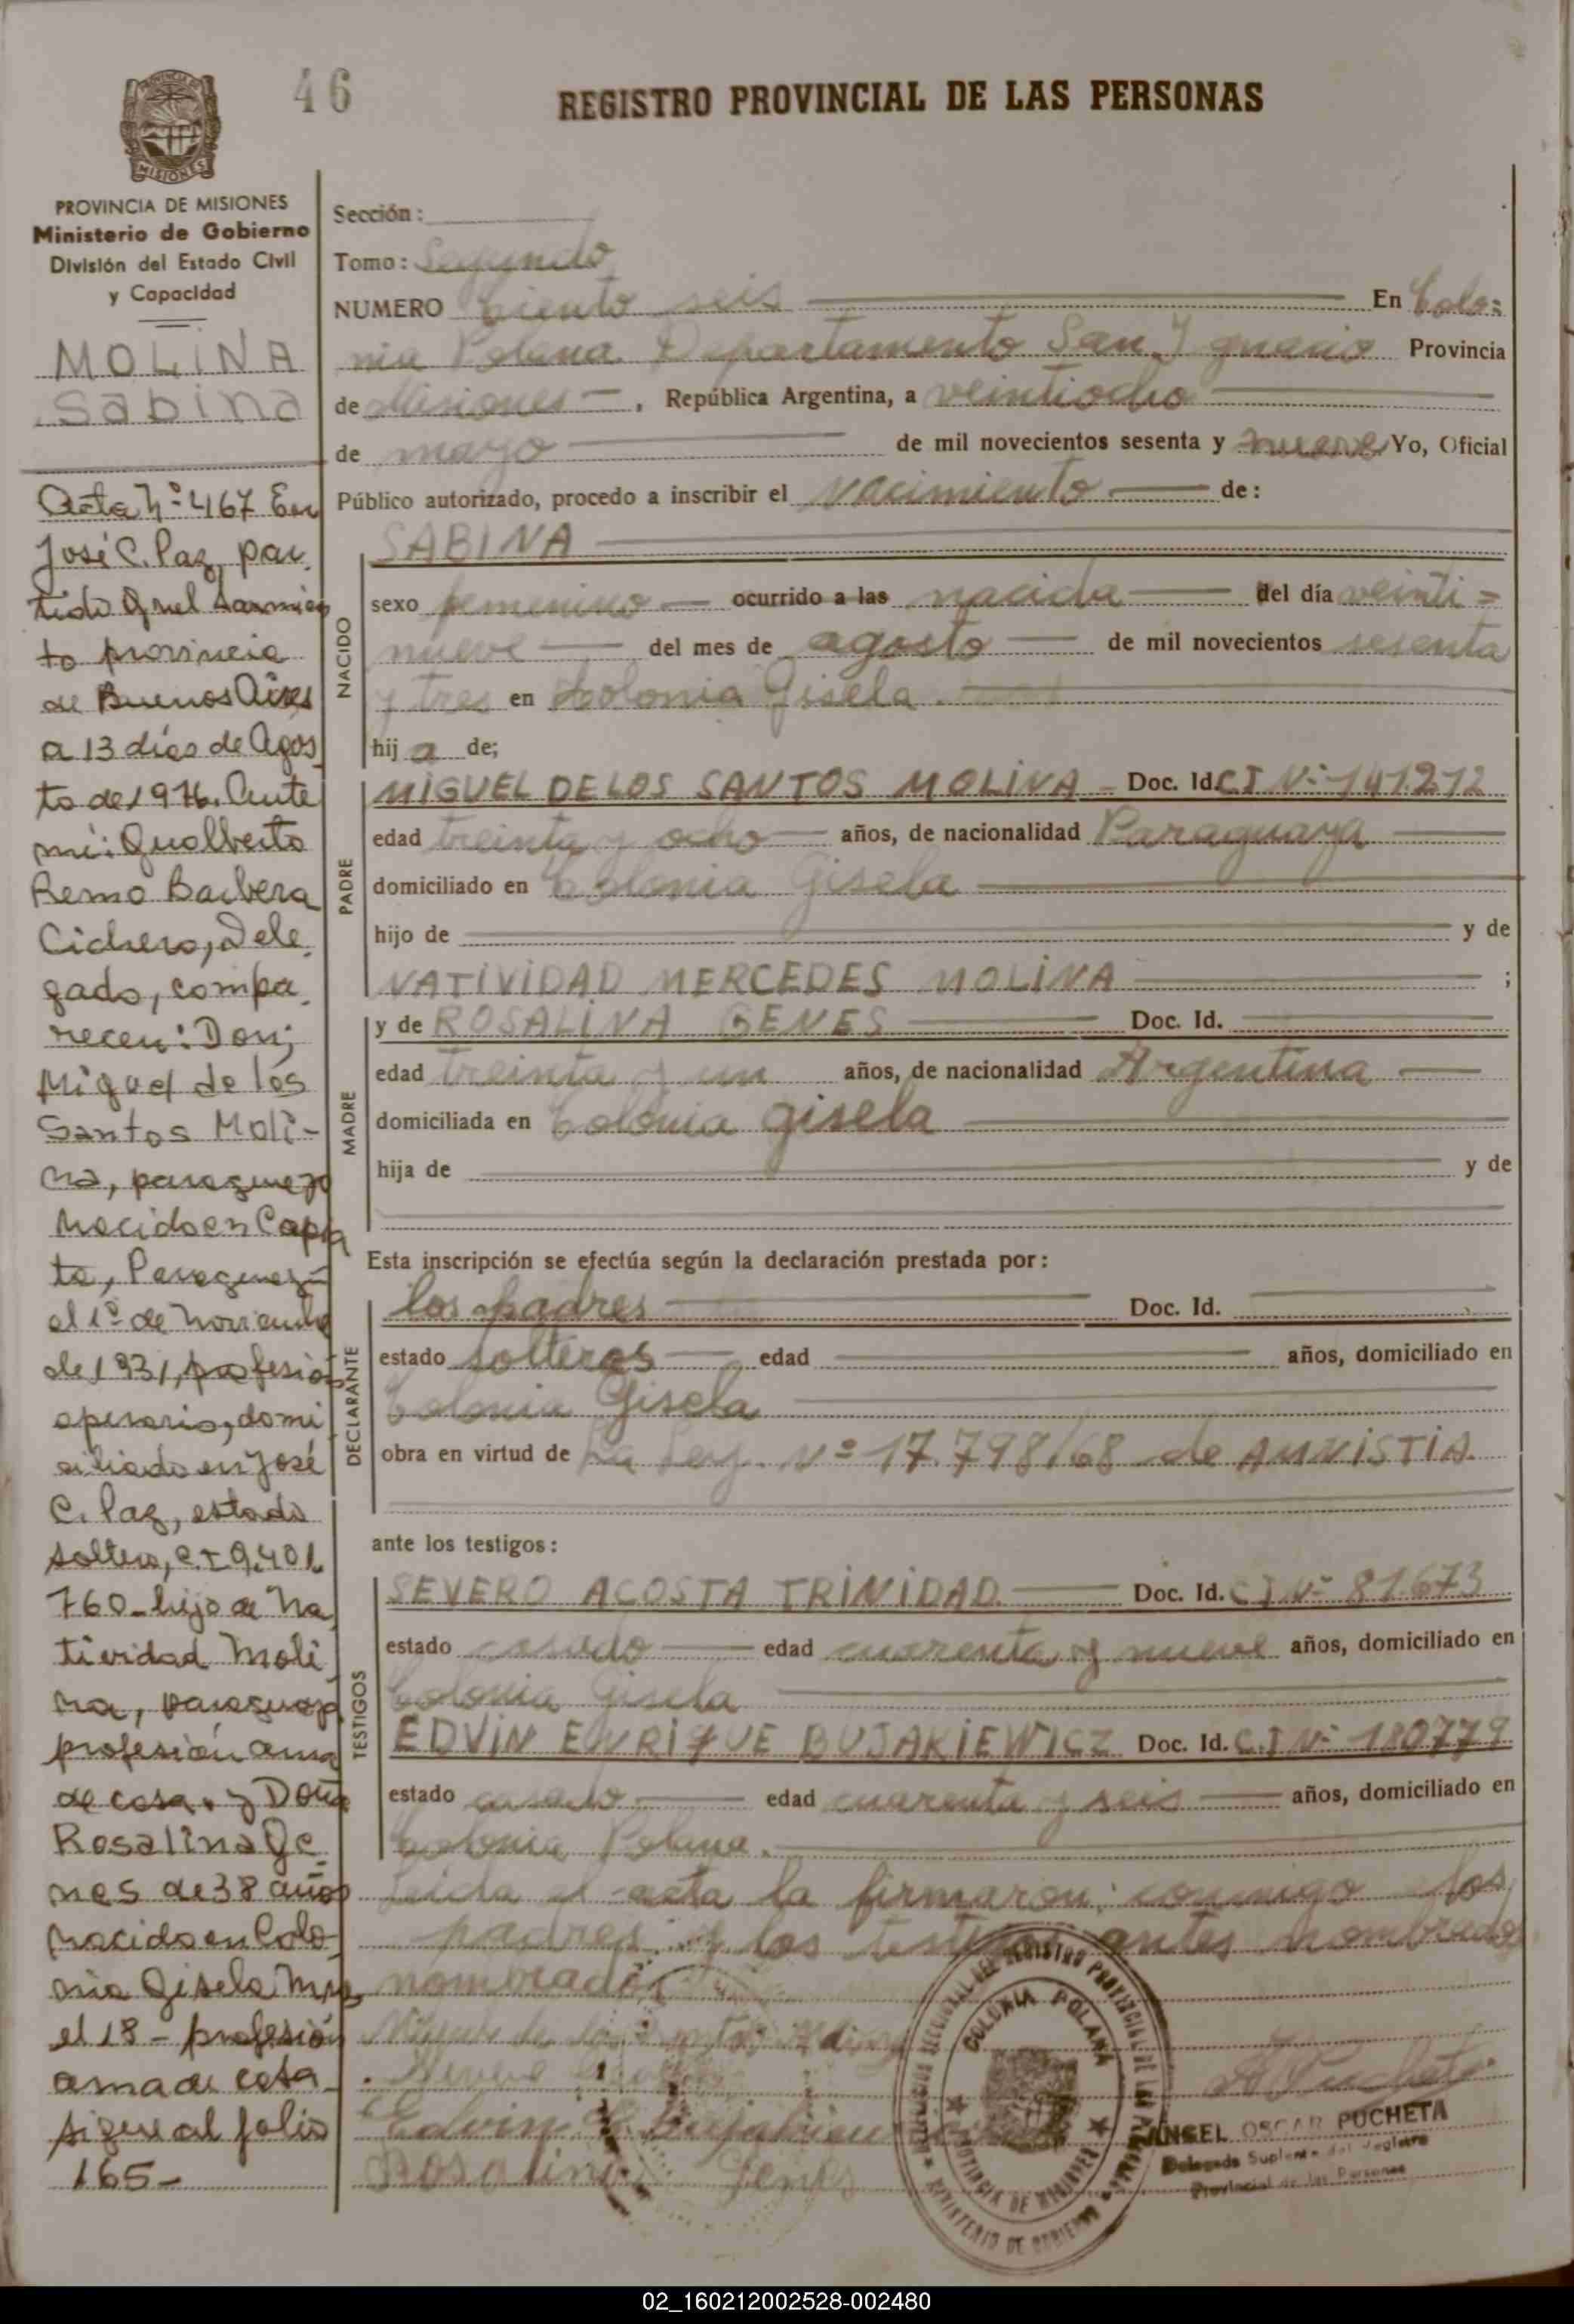 46
REGISTRO PROVINCIAL DE LAS PERSONAS
MISIONES
PROVINCIA DE MISIONES
Ministerio de Gobierno
División del Estado Civil
y Capacidad
MOLINA
Sabina
Acta Nº 467 En
José C. Paz, par
tido Gral Sarmien
to provincia
de Buenos Aires
a 13 días de Agos
to de 1976. Ante
mí: Gualberto
Remo Barbera
Cichero, Dele
gado, compa
recen: Don;
Miguel de los
Santos Moli-
na, paraguayo
nacido en Capia
ta, Paraguay
el 1º de noviembre
de 1931, profesión
operario, domi
ciliado en José
C. Paz, estado
soltero, C.I 9.401.
760 - hijo de Na
tividad Moli
na, paraguaya
profesión ama
de casa. y Doña
Rosalina Ge
nes de 38 años
nacida en Colo
nia Gisela Mnes
el 18 - profesión
ama de casa
sigue al folio
165-
Sección:
Tomo: Segundo
NUMERO Ciento seis En Colo=
nia Polana Departamento San Ignacio Provincia
de Misiones, República Argentina, a veintiocho
de mayo de mil novecientos sesenta y nueve Yo, Oficial
Público autorizado, procedo a inscribir el Nacimiento de:
NACIDO
SABINA
sexo femenino ocurrido a las nacida del día veinti=
nueve del mes de agosto de mil novecientos sesenta
y tres en Colonia Gisela.
hij a de;
PADRE
MIGUEL DE LOS SANTOS MOLINA - Doc. Id. CI Nº 141.212
edad treinta y ocho años, de nacionalidad Paraguaya
domiciliado en Colonia Gisela
hijo de y de
NATIVIDAD MERCEDES MOLINA ;
MADRE
y de ROSALINA GENES Doc. Id.
edad treinta y un años, de nacionalidad Argentina
domiciliada en Colonia gisela
hija de y de
Esta inscripción se efectúa según la declaración prestada por:
DECLARANTE
los padres Doc. Id.
estado solteros edad años, domiciliado en
Colonia Gisela
obra en virtud de La Ley Nº 17.798/68 de AMNISTIA.
ante los testigos:
TESTIGOS
SEVERO ACOSTA TRINIDAD Doc. Id. CI Nº 81.673
estado casado edad cuarenta y nueve años, domiciliado en
Colonia Gisela
EDVIN ENRIQUE BUJAKIEWICZ Doc. Id. C.I Nº 180779
estado casado edad cuarenta y seis años, domiciliado en
Colonia Polana.
Leida el acta la firmaron: conmigo los
padres y los testigos antes nombrado
nombrados
Rosalina Genes
COLONIA POLANA
PROVINCIA DE MISIONES
MINISTERIO DE GOBIERNO
ANGEL OSCAR PUCHETA
Delegado Suplente del Registro
Provincial de las Personas
02_160212002528-002480